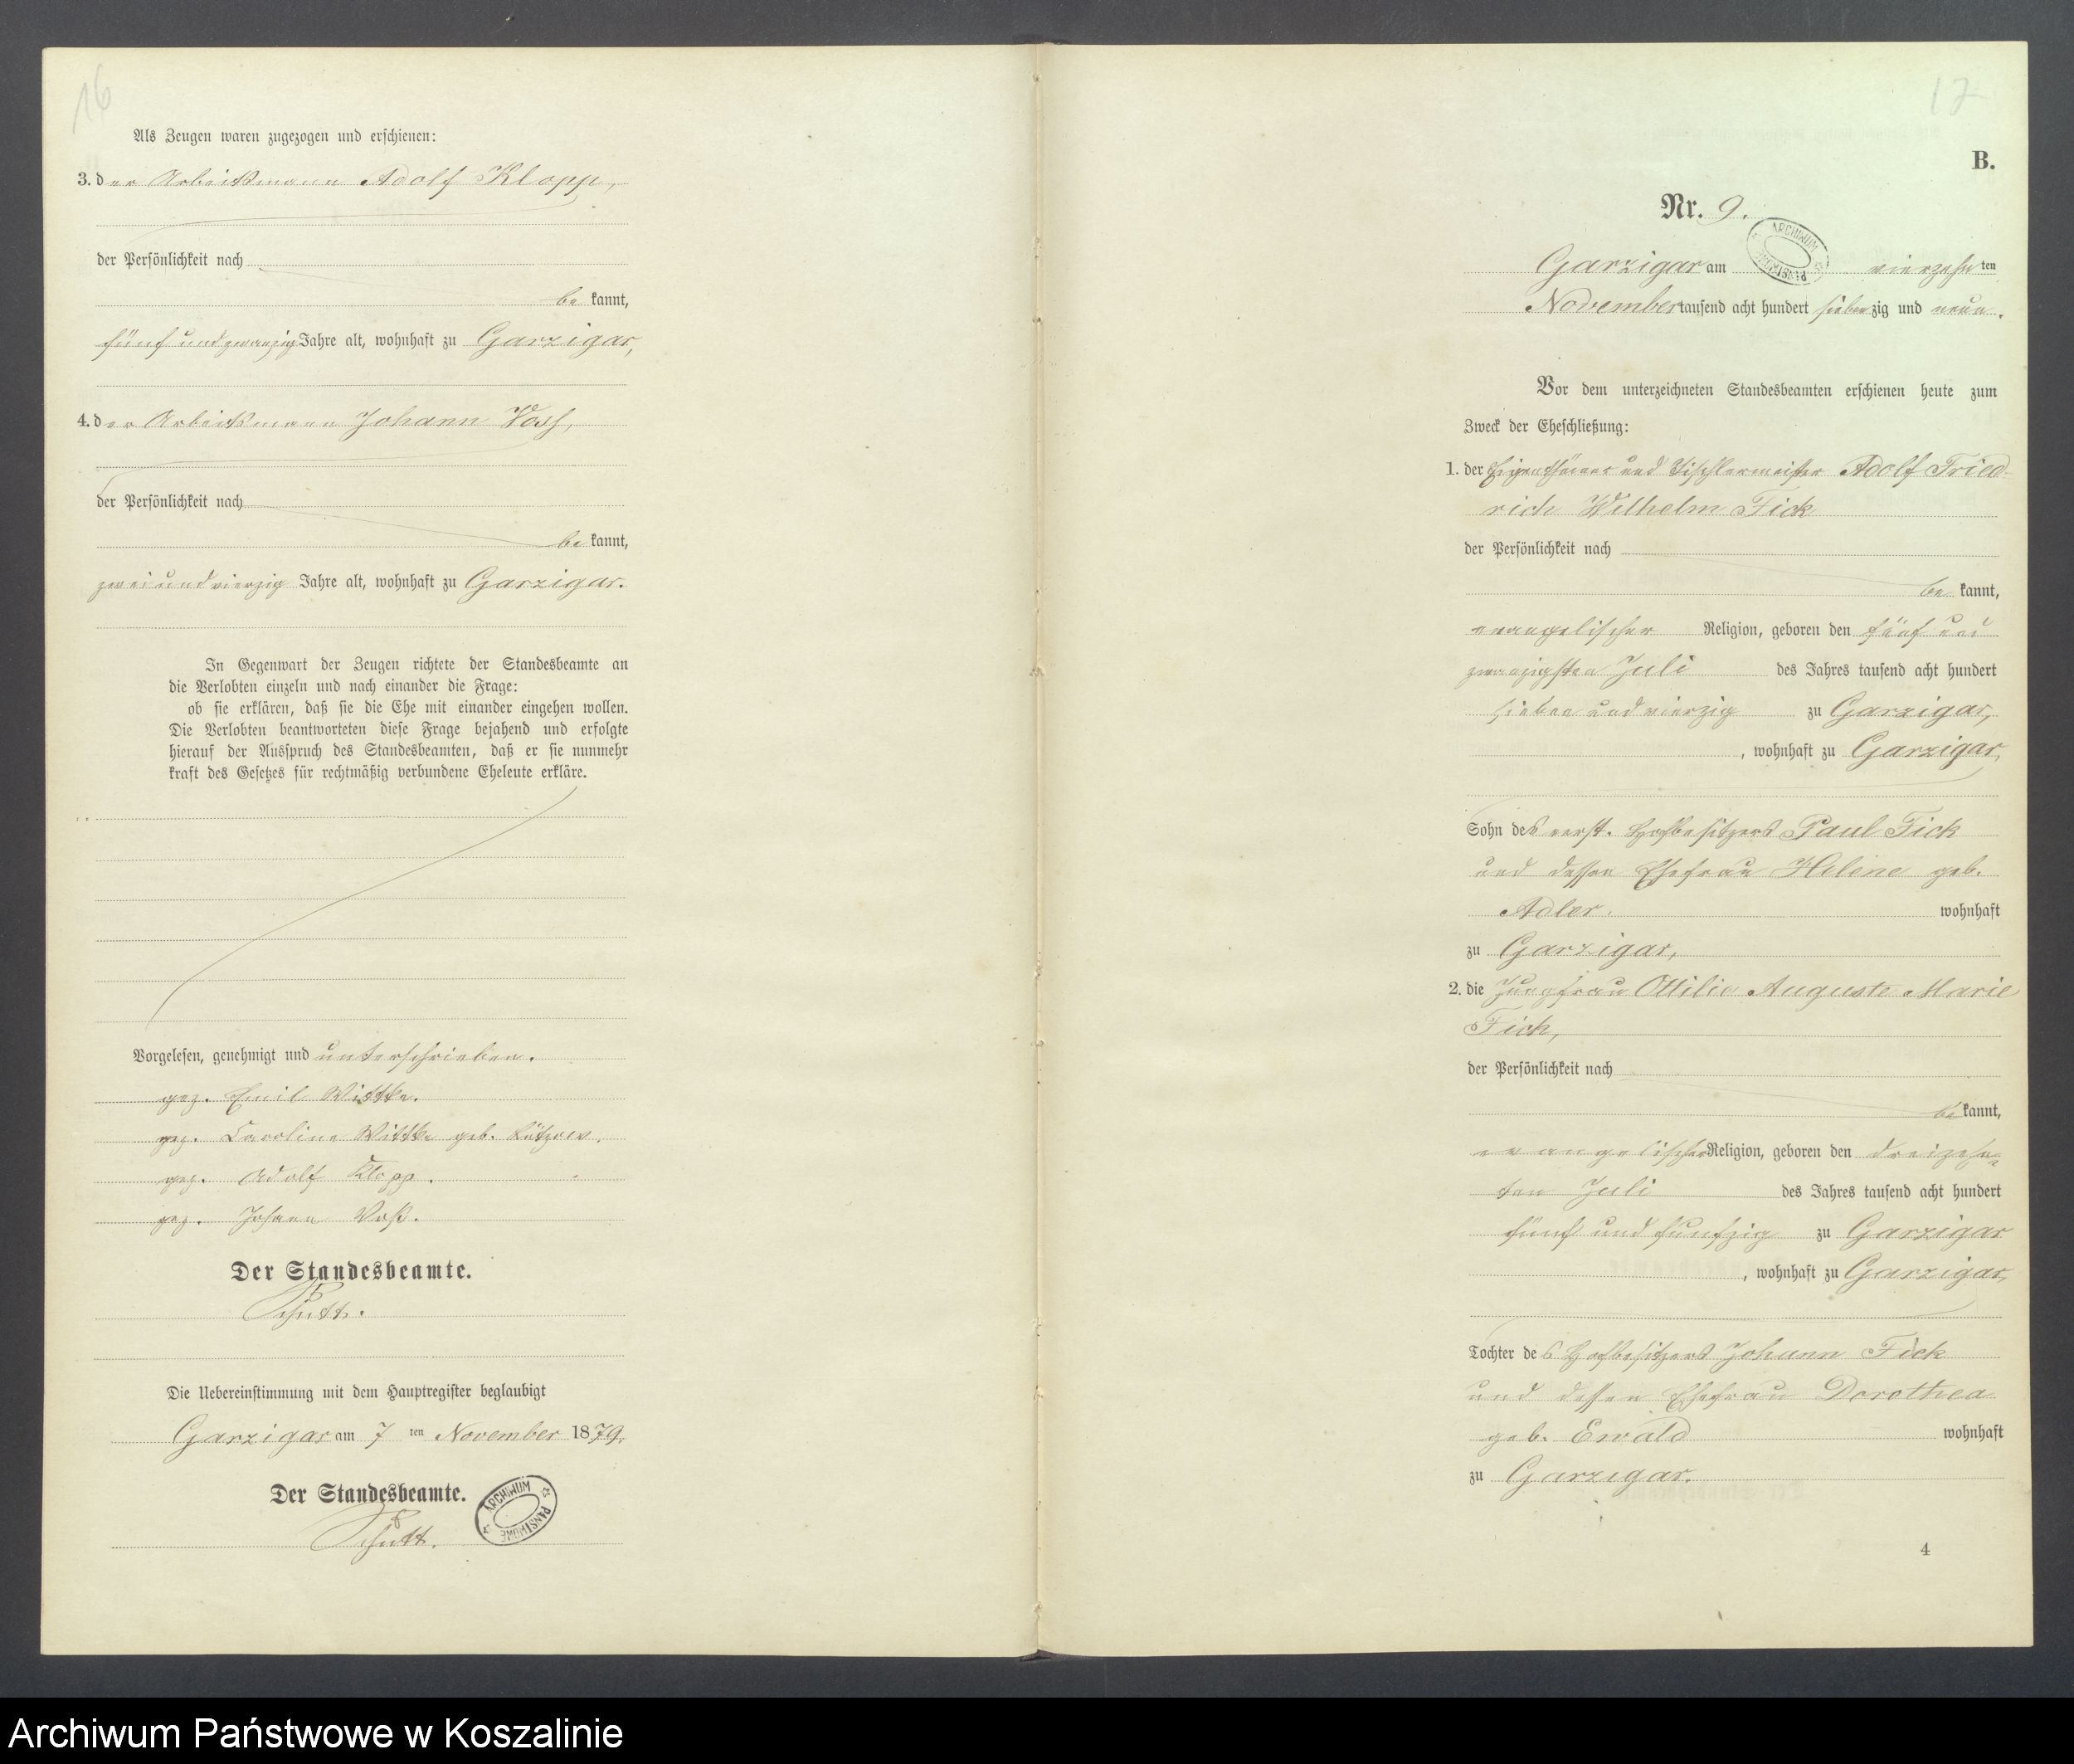 16
Als Zeugen waren zugezogen und erschienen:
3. der Arbeitsmann Adolf Klopp,
der Persönlichkeit nach
bekannt,
fünf und zwanzig Jahre alt, wohnhaft zu Garzigar,
4. der Arbeitsmann Johann Voß,
der Persönlichkeit nach
bekannt,
zwei und vierzig Jahre alt, wohnhaft zu Garzigar.
In Gegenwart der Zeugen richtete der Standesbeamte an
die Verlobten einzeln und nach einander die Frage:
ob sie erklären, daß sie die Ehe mit einander eingehen wollen.
Die Verlobten beantworteten diese Frage bejahend und erfolgte
hierauf der Ausspruch des Standesbeamten, daß er sie nunmehr
kraft des Gesetzes für rechtmäßig verbundene Eheleute erkläre.
Vorgelesen, genehmigt und unterschrieben.
gez. Emil Wittke.
gez. Caroline Wittke geb. Lützow.
gez. Adolf Klopp.
gez. Johann Voß.
Der Standesbeamte.
Schütt.
Die Uebereinstimmung mit dem Hauptregister beglaubigt
Garzigar am 7 ten November 1879.
Der Standesbeamte.
Schütt.
ARCHIWUM PAŃSTWOWE
17
B.
Nr. 9.
ARCHIWUM PAŃSTWOWE
Garzigar am vierzehn ten
November tausend acht hundert siebenzig und neun.
Vor dem unterzeichneten Standesbeamten erschienen heute zum
Zweck der Eheschließung:
1. der Eigenthümer und Tischlermeister Adolf Fried-
rich Wilhelm Fick
der Persönlichkeit nach
bekannt,
evangelischer Religion, geboren den fünf und
zwanzigsten Juli des Jahres tausend acht hundert
sieben und vierzig zu Garzigar,
, wohnhaft zu Garzigar,
Sohn des verst. Hofbesitzers Paul Fick
und dessen Ehefrau Helene geb.
Adler. wohnhaft
zu Garzigar,
2. die Jungfrau Ottilie Auguste Marie
Fick,
der Persönlichkeit nach
bekannt,
evangelischer Religion, geboren den dreizehn
ten Juli des Jahres tausend acht hundert
fünf und funfzig zu Garzigar
, wohnhaft zu Garzigar,
Tochter des Hofbesitzers Johann Fick
und dessen Ehefrau Dorothea
geb. Ewald wohnhaft
zu Garzigar.
4
Archiwum Państwowe w Koszalinie